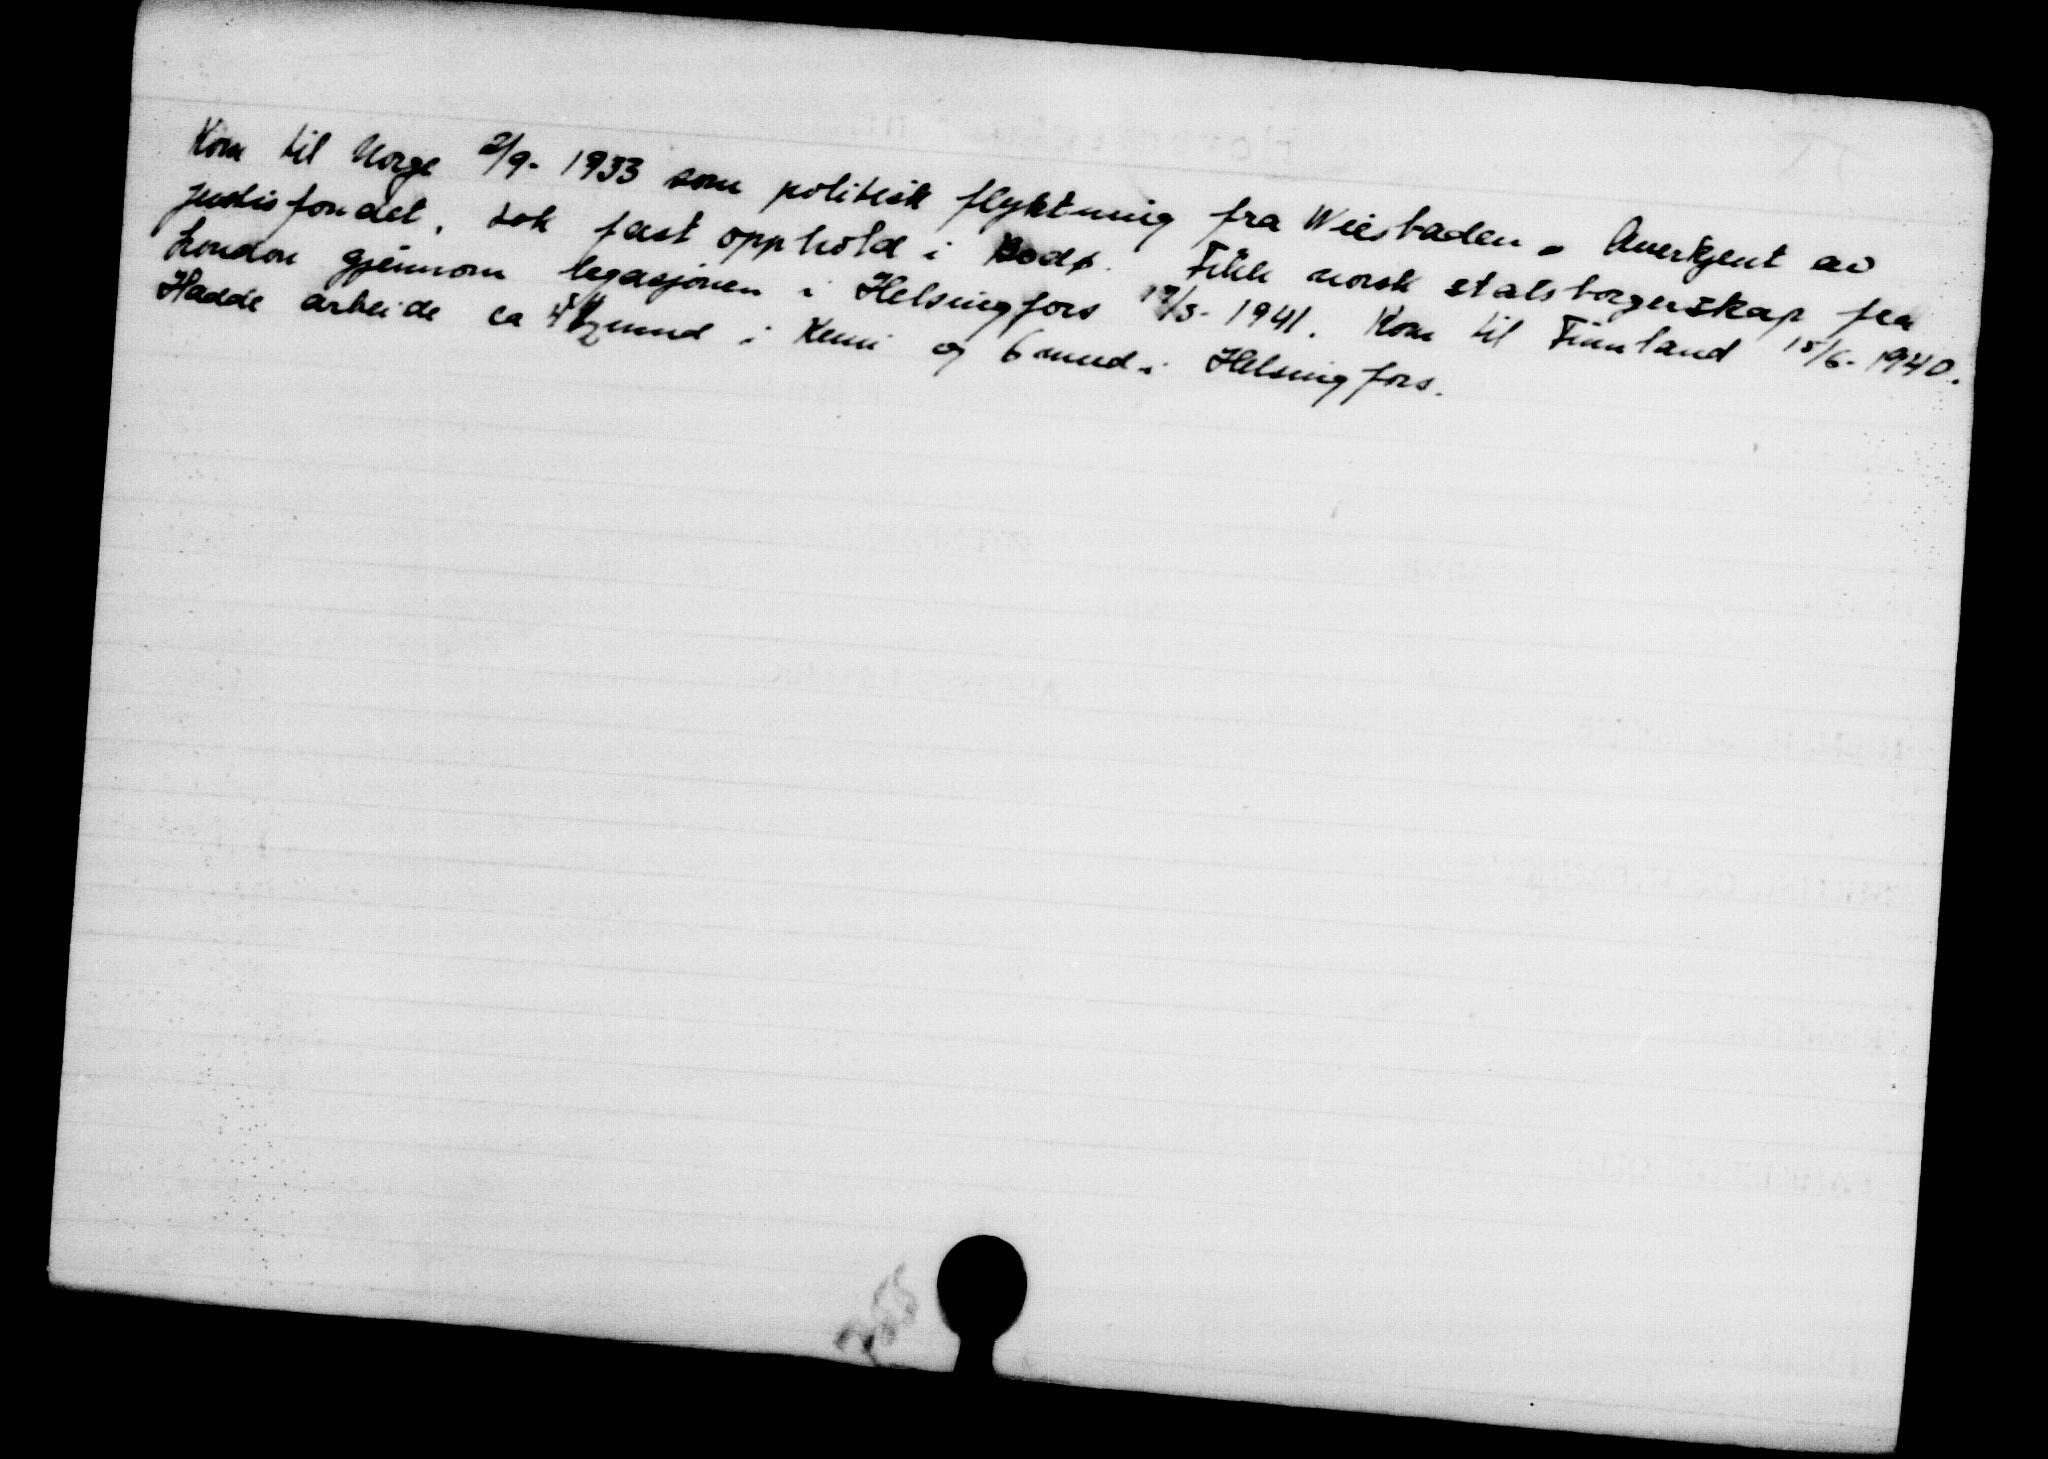 Kom til Norge 2/9- 1933 som politisk flyktning fra Wiesbaden. Anerkjent av
justisfondet, tok fast opphold i Bodø. Fikk norsk statsborgerskap fra
London gjennom legasjonen i Helsingfors 17/3- 1941. Kom til Finnland 15/6- 1940.
Hadde arbeide ca mnd i Kemi og 6 mnd i Helsingfors.